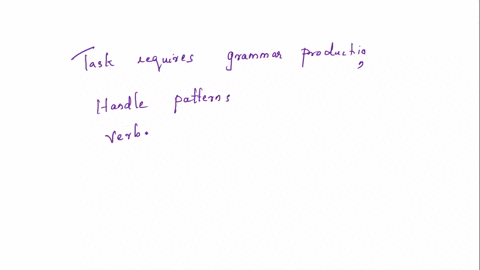 Task requires grammar productio,
Handle patterns
verb.